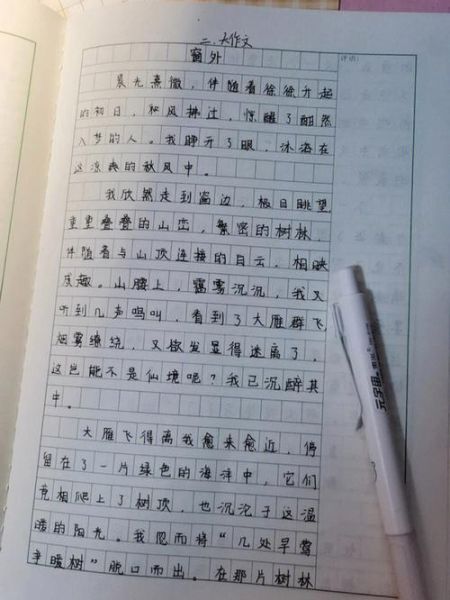 二、大作文
窗外
晨光熹微，伴随着徐徐升起
的初日，和风拂过，惊醒了酣然
入梦的人。我睁开了眼，沐浴在
这凉爽的秋风中。
我欣然走到窗边，极目眺望
重重叠叠的山峦，繁密的树林，
伴随着与山顶连接的白云，相映
成趣。山腰上，雾沉沉，我又
听到几声鸣叫，看到了大雁群飞
烟雾缭绕，又欲发显得迷离了，
这岂能不是仙境呢？我已沉醉其
中。
大雁飞得离我愈来愈近，停
留在了一片绿色的海洋中，它们
竞相爬上了树顶，也沉沦于这温
暖的阳光。我忽而将“几处早莺
争暖树”脱口而出。在那片树林
评语：